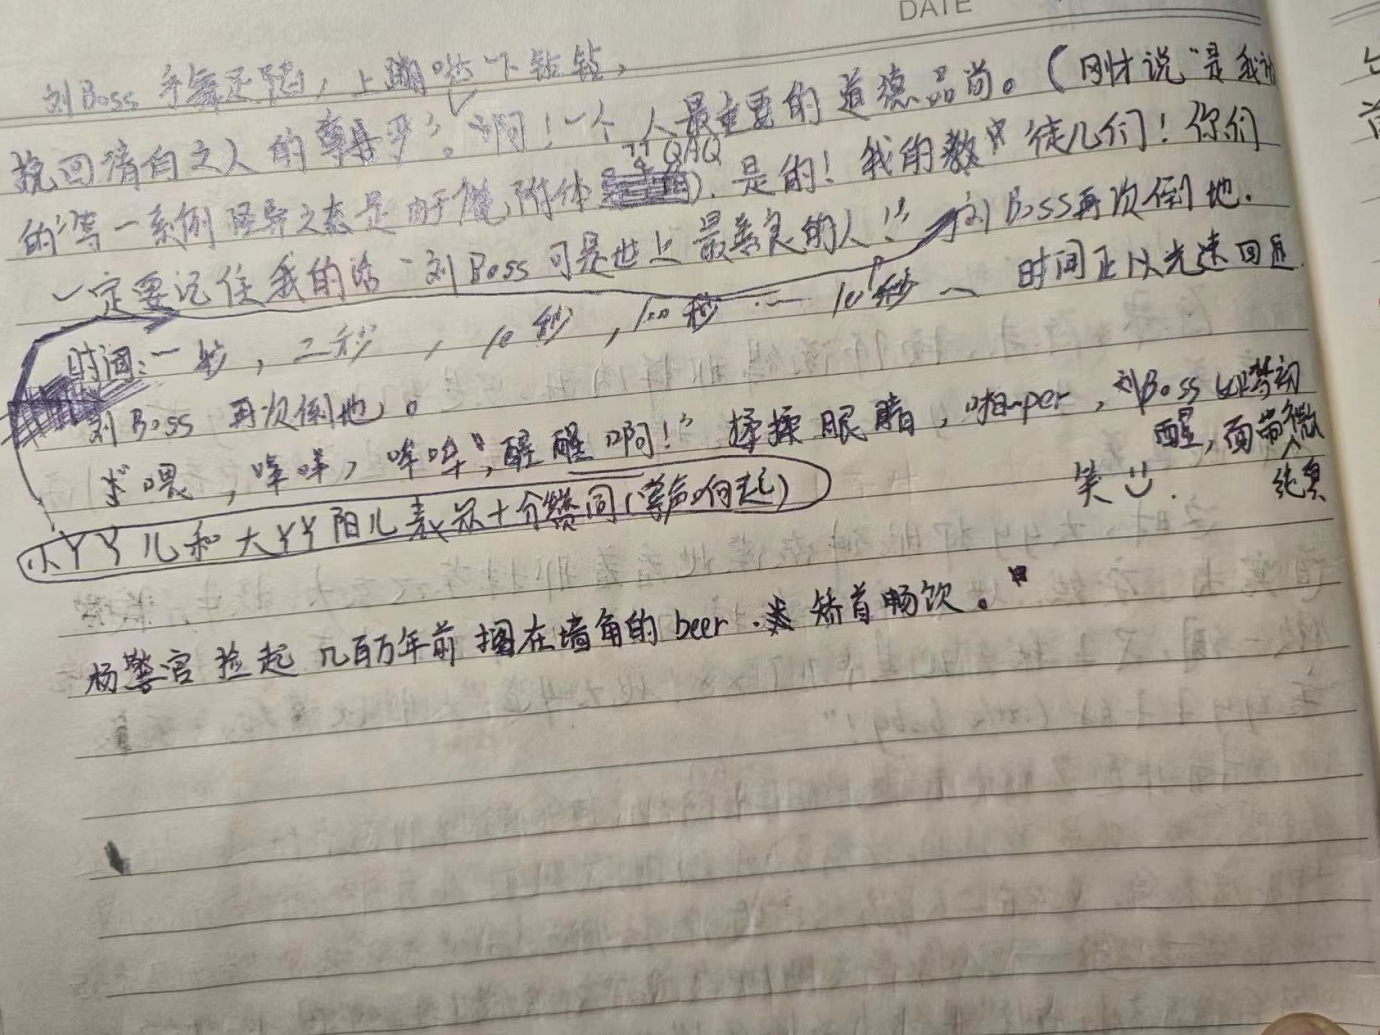 DATE
刘Boss 手舞足蹈，上蹦 下钻钻，
挽回清白之人的尊 严”。啊！一个人最重要的道德品尚。（刚才说“是我
QAQ
的”等一系例怪异之态是由于 附体 ）. 是的！我的教 徒儿们！你们
一定要记住我的话“刘Boss可是世上最善良的人！” 刘Boss再次倒地.
时间：一秒，二秒，10秒，100秒 一 时间正以光速回
刘Boss 再次倒地。
喂，哞哞，哞哞”，醒醒啊！” 揉揉眼睛，啪per，刘Boss如梦初
醒，面带微
纯真
笑
小丫丫儿和大丫丫阳儿表示十分赞同（掌声响起）
杨警官捡起几百万年前搁在墙角的beer. 矫首畅饮。”